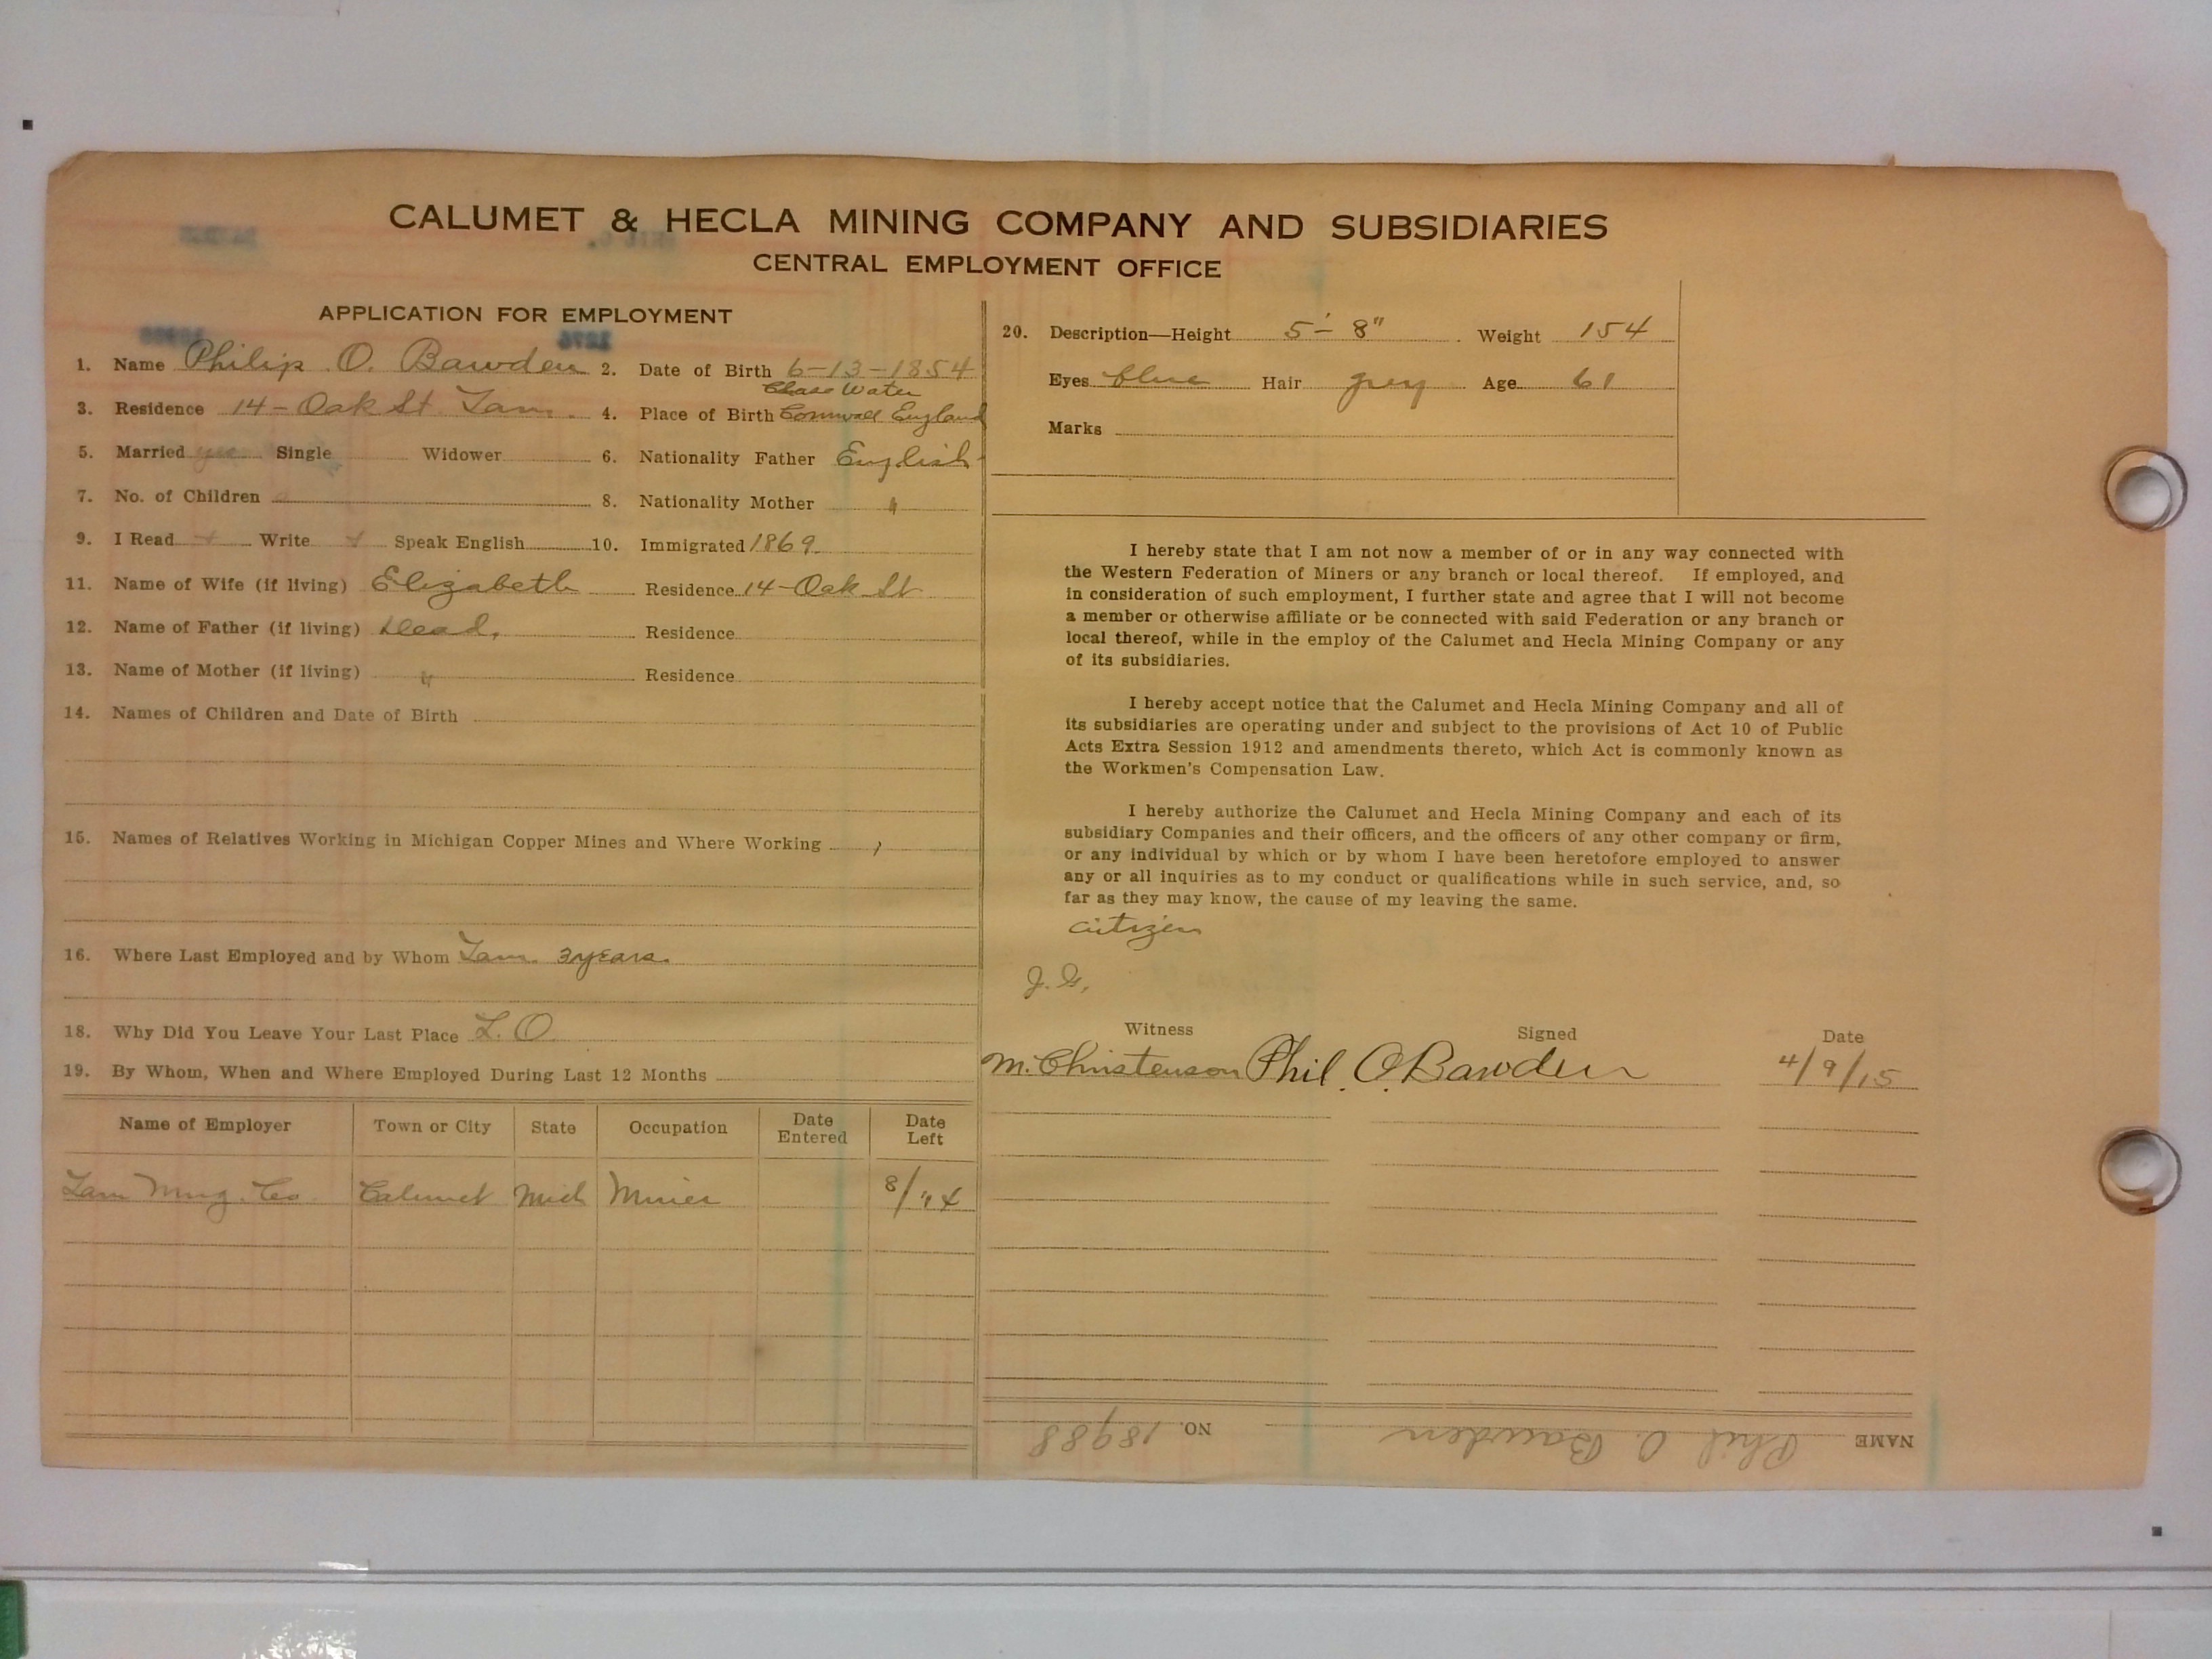 CALUMET & HECLA MINING COMPANY AND SUBSIDIARIES
CENTRAL EMPLOYMENT OFFICE
APPLICATION FOR EMPLOYMENT
1. Name Philip O. Bawden 2. Date of Birth 6-13-1854
3. Residence 14-Oak St Tam. 4. Place of Birth Chase Water Cornwall England
5. Married yes Single Widower 6. Nationality Father English
7. No. of Children 8. Nationality Mother "
9. I Read + Write + Speak English 10. Immigrated 1869
11. Name of Wife (if living) Elizabeth Residence 14-Oak St
12. Name of Father (if living) Dead, Residence
13. Name of Mother (if living) " Residence
14. Names of Children and Date of Birth
15. Names of Relatives Working in Michigan Copper Mines and Where Working
16. Where Last Employed and by Whom Tam. 3 years.
18. Why Did You Leave Your Last Place L.O.
19. By Whom, When and Where Employed During Last 12 Months
Name of Employer Town or City State Occupation Date Entered Date Left
Tam Mng. Co. Calumet Mich Miner 8/'14
20. Description—Height 5'-8" Weight 154
Eyes blue Hair grey Age 61
Marks
I hereby state that I am not now a member of or in any way connected with
the Western Federation of Miners or any branch or local thereof. If employed, and
in consideration of such employment, I further state and agree that I will not become
a member or otherwise affiliate or be connected with said Federation or any branch or
local thereof, while in the employ of the Calumet and Hecla Mining Company or any
of its subsidiaries.
I hereby accept notice that the Calumet and Hecla Mining Company and all of
its subsidiaries are operating under and subject to the provisions of Act 10 of Public
Acts Extra Session 1912 and amendments thereto, which Act is commonly known as
the Workmen's Compensation Law.
I hereby authorize the Calumet and Hecla Mining Company and each of its
subsidiary Companies and their officers, and the officers of any other company or firm,
or any individual by which or by whom I have been heretofore employed to answer
any or all inquiries as to my conduct or qualifications while in such service, and, so
far as they may know, the cause of my leaving the same.
citizen
J.G.
Witness Signed Date
M. Christenson Phil. O. Bawden 4/9/15
NAME Phil O. Bawden NO. 18988